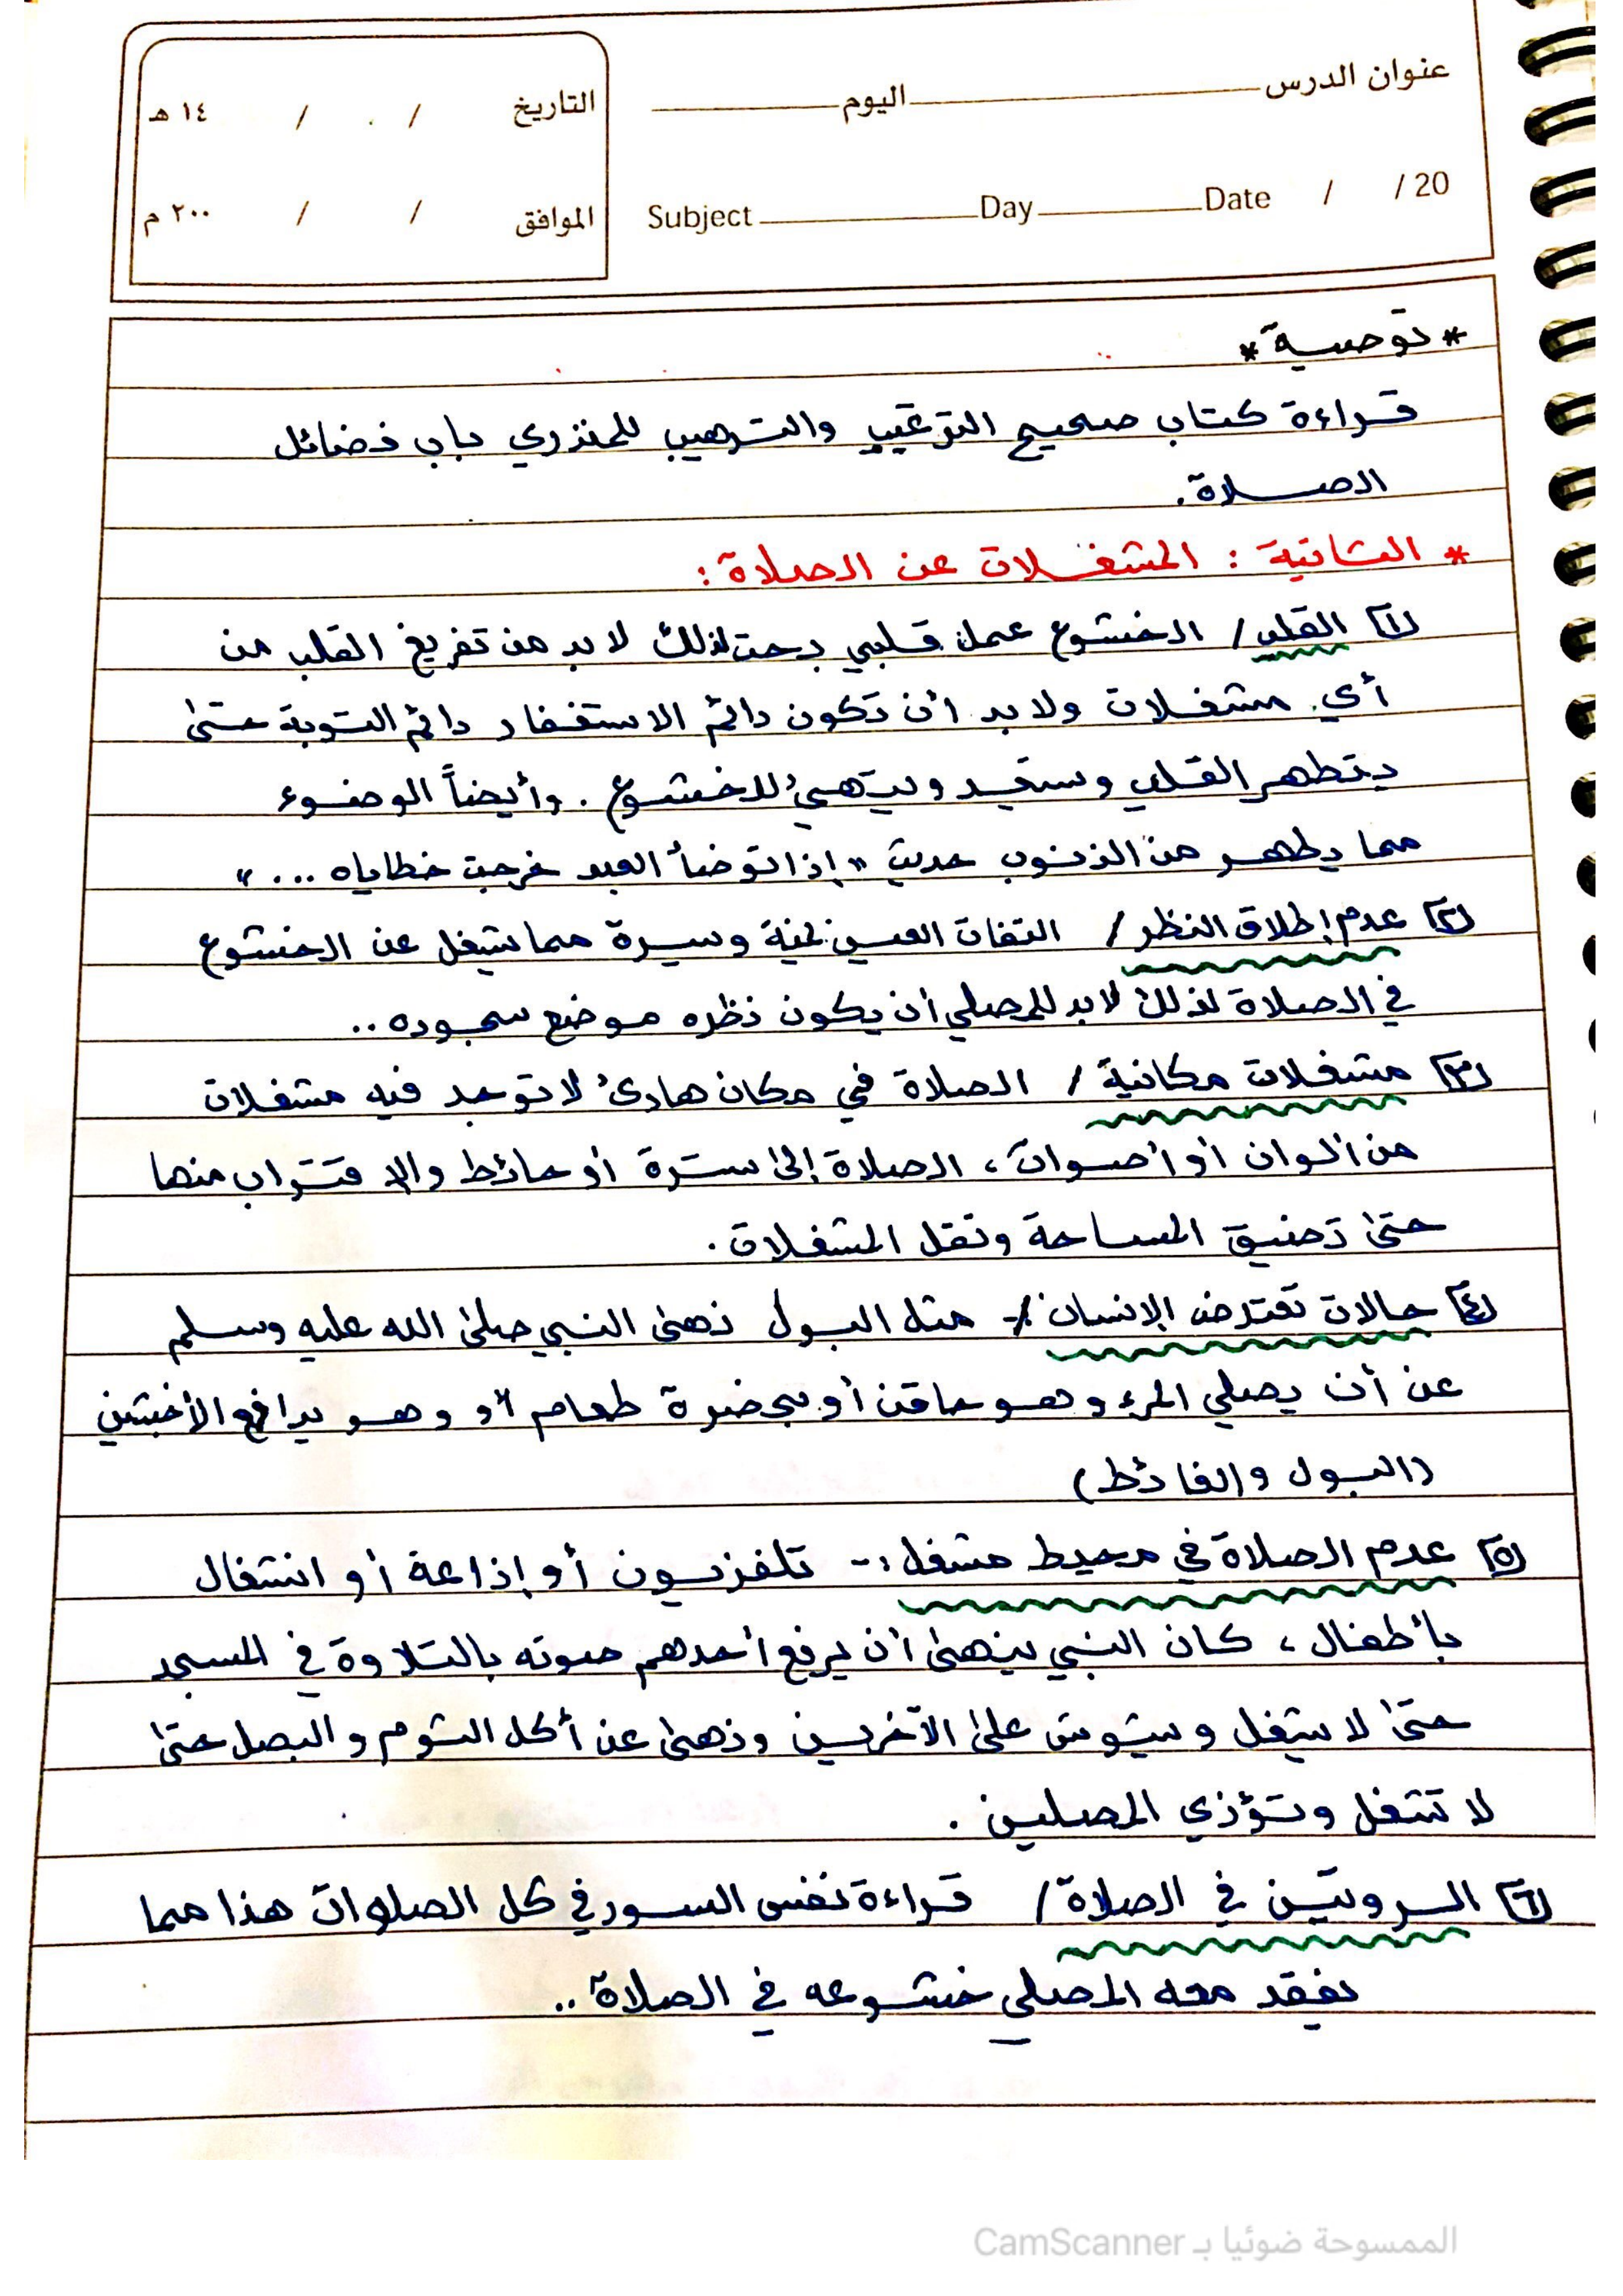 عنوان الدرس اليوم
التاريخ / / ١٤ هـ
Subject Day Date / / 20
الموافق / / ٢٠٠ م
* توصية *
قراءة كتاب صحيح الترغيب والترهيب للمنذري باب فضائل
الصلاة.
* الثانية : المشغلات عن الصلاة :
١] القلب / الخشوع عمل قلبي بحت لذلك لا بد من تفريغ القلب من
أي مشغلات ولا بد أن تكون دائم الاستغفار دائم التوبة حتى
يتطهر القلب ويتهيئ للخشوع . وأيضاً الوضوء
مما يطهر من الذنوب حديث " إذا توضأ العبد خرجت خطاياه ... "
٢] عدم إطلاق النظر / التفات العين يمنة ويسرة مما يشغل عن الخشوع
في الصلاة لذلك لا بد للمصلي أن يكون نظره موضع سجوده ..
٣] مشغلات مكانية / الصلاة في مكان هادئ لا توجد فيه مشغلات
من ألوان أو أصوات ، الصلاة إلى سترة أو حائط والاقتراب منها
حتى تضيق المساحة وتقل المشغلات .
٤] حالات تعترض الإنسان /- مثل البول نهى النبي صلى الله عليه وسلم
عن أن يصلي المرء وهو حاقن أو بحضرة طعام أو وهو يدافع الأخبثين
(البول والغائط)
٥] عدم الصلاة في محيط مشغل :- تلفزيون أو إذاعة أو انشغال
بأطفال ، كان النبي ينهى أن يرفع أحدهم صوته بالتلاوة في المسجد
حتى لا يشغل ويشوش على الآخرين ونهى عن أكل الثوم والبصل حتى
لا تشغل وتؤذي المصلين .
٦] الروتين في الصلاة / قراءة نفس السور في كل الصلوات هذا مما
يفقد معه المصلي خشوعه في الصلاة ..
الممسوحة ضوئيا بـ CamScanner